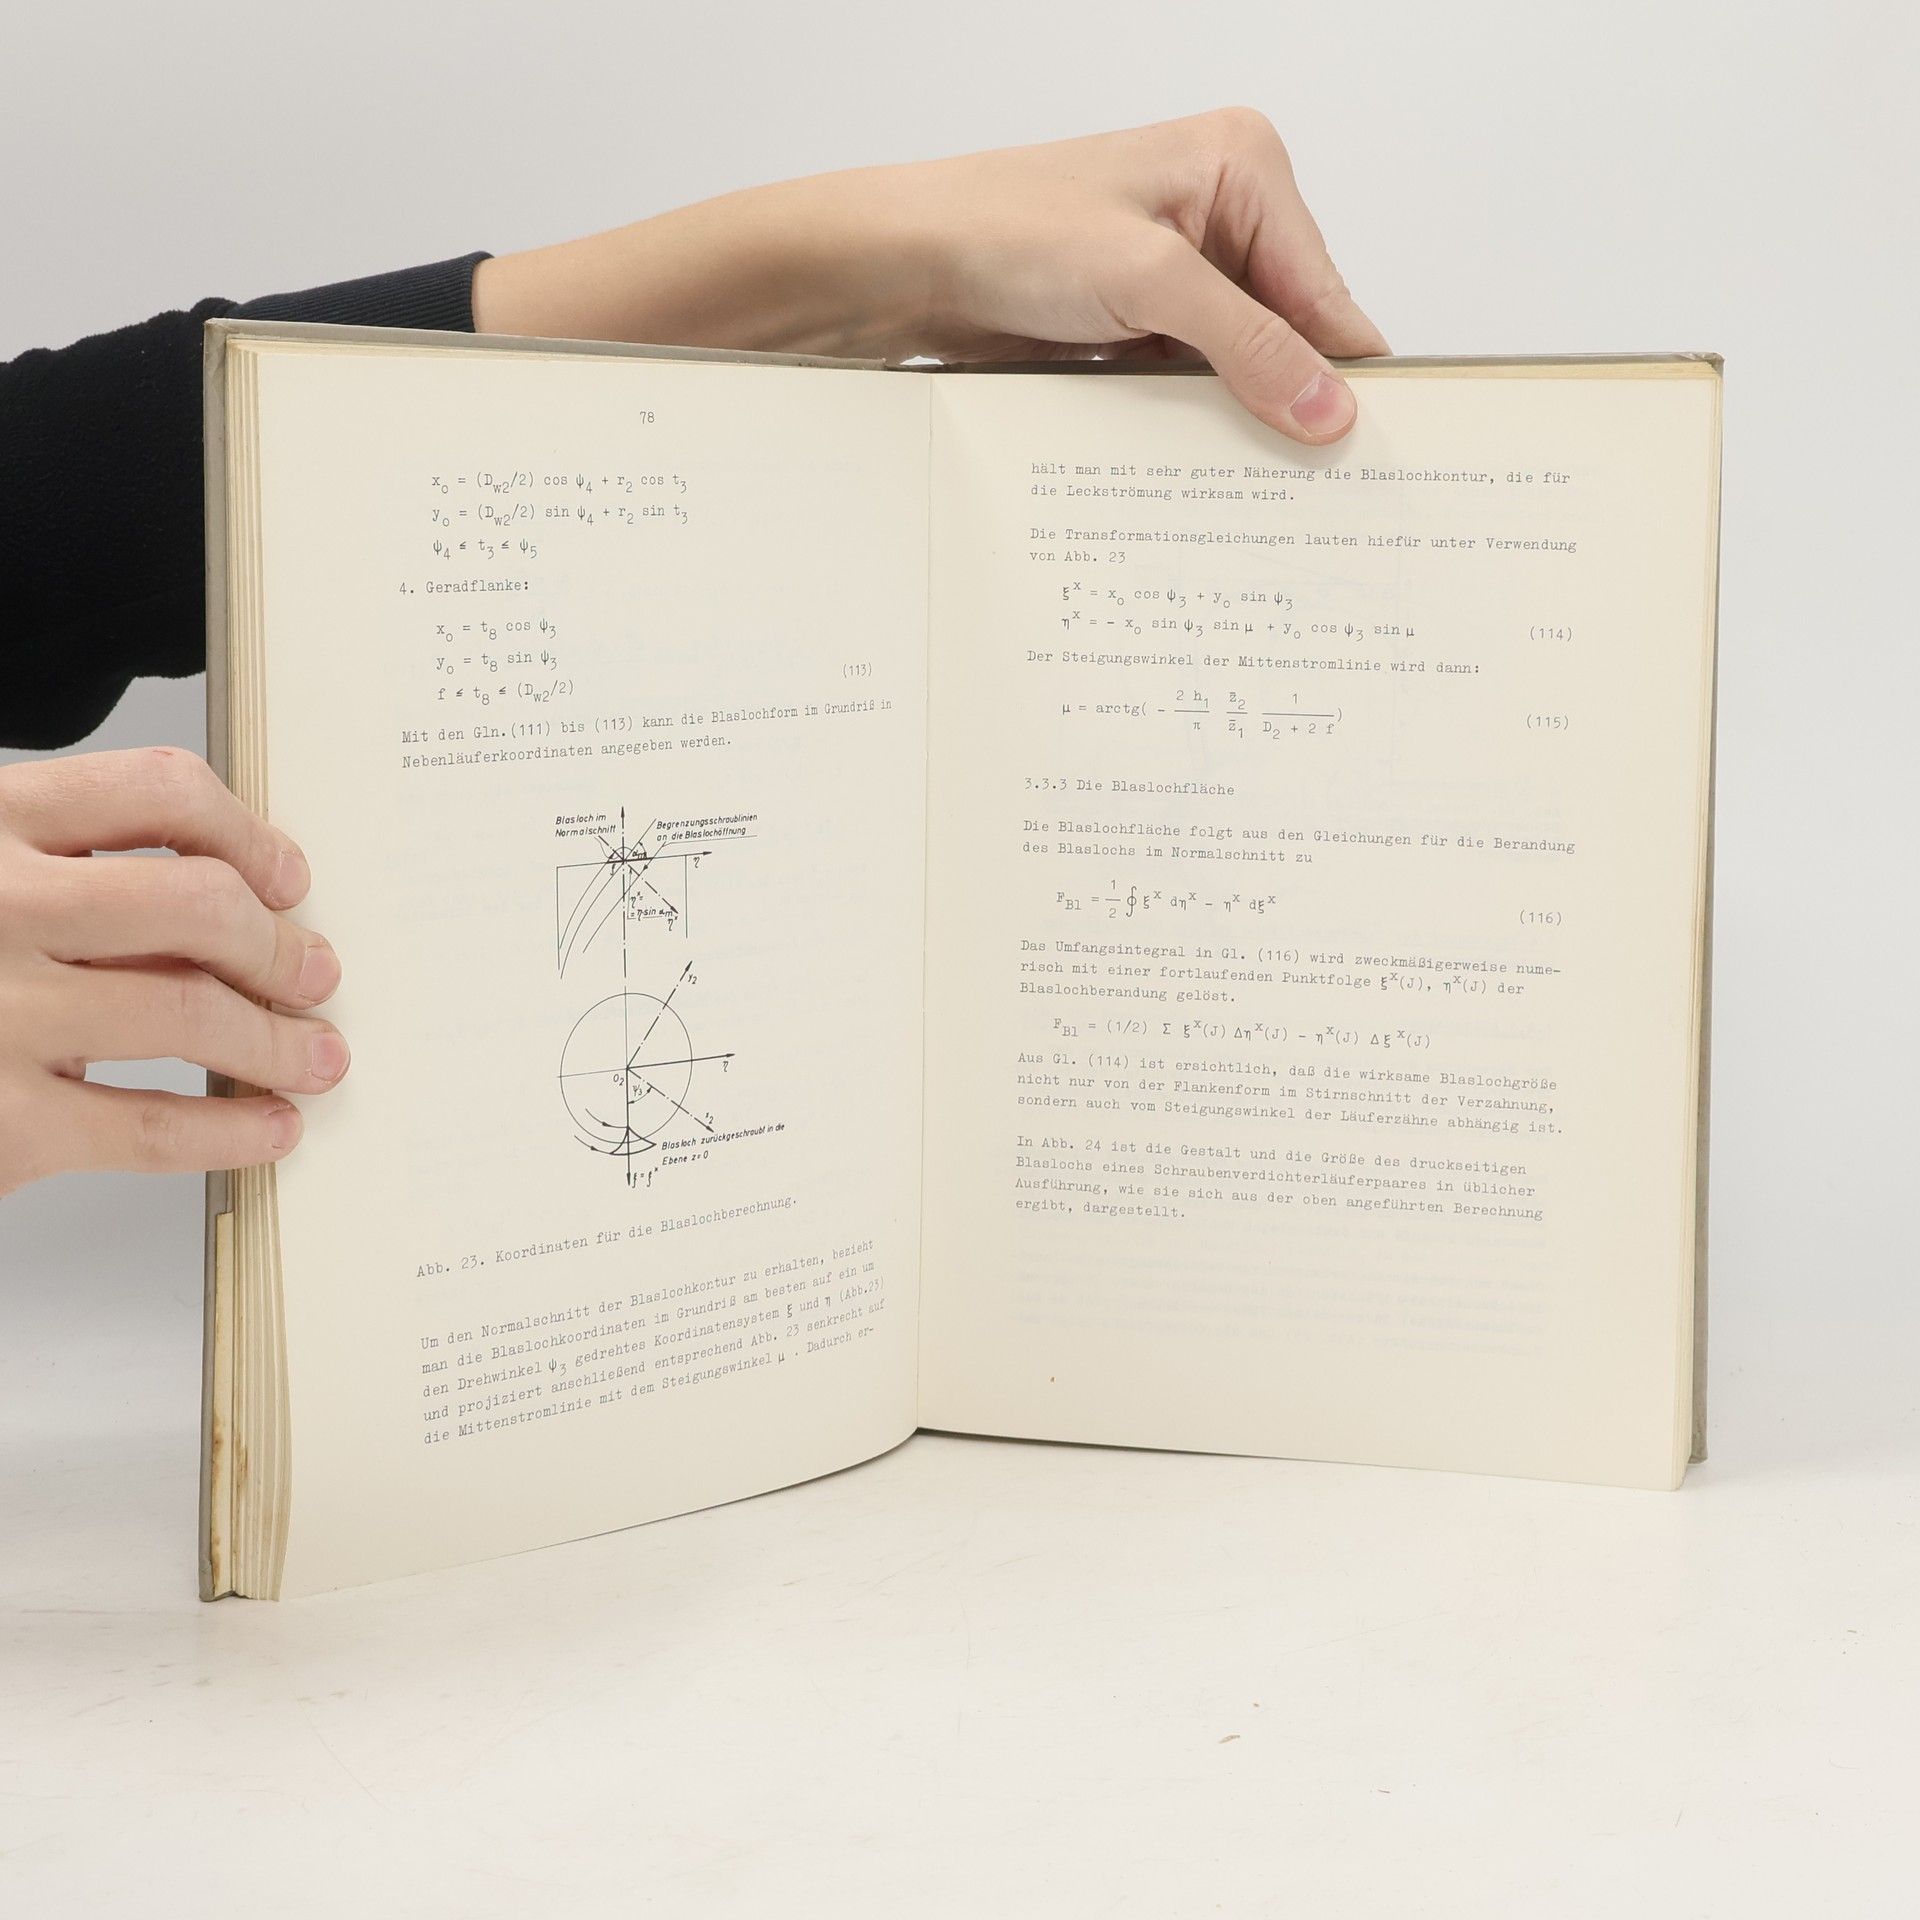 78
x₀ = (D_w2/2) cos ψ₄ + r₂ cos t₃
y₀ = (D_w2/2) sin ψ₄ + r₂ sin t₃
ψ₄ ≤ t₃ ≤ ψ₅
4. Geradflanke:
x₀ = t₈ cos ψ₃
y₀ = t₈ sin ψ₃
f ≤ t₈ ≤ (D_w2/2) (113)
Mit den Gln.(111) bis (113) kann die Blaslochform im Grundriß in
Nebenläuferkoordinaten angegeben werden.
Blasloch im
Normalschnitt
Begrenzungsschraublinien
an die Blaslochöffnung
α_m
η
f
η^x=
=η sin α_m
η^x
y₂
η
O₂
ψ₃
x₂
Blasloch zurückgeschraubt in die
Ebene z=0
ξ=ξ^x
Abb. 23. Koordinaten für die Blaslochberechnung.
Um den Normalschnitt der Blaslochkontur zu erhalten, bezieht
man die Blaslochkoordinaten im Grundriß am besten auf ein um
den Drehwinkel ψ₃ gedrehtes Koordinatensystem ξ und η (Abb.23)
und projiziert anschließend entsprechend Abb. 23 senkrecht auf
die Mittenstromlinie mit dem Steigungswinkel μ . Dadurch er-
hält man mit sehr guter Näherung die Blaslochkontur, die für
die Leckströmung wirksam wird.
Die Transformationsgleichungen lauten hiefür unter Verwendung
von Abb. 23
ξ^x = x₀ cos ψ₃ + y₀ sin ψ₃
η^x = - x₀ sin ψ₃ sin μ + y₀ cos ψ₃ sin μ (114)
Der Steigungswinkel der Mittenstromlinie wird dann:
μ = arctg( - (2 h₁)/π z̄₂/z̄₁ 1/(D₂ + 2 f)) (115)
3.3.3 Die Blaslochfläche
Die Blaslochfläche folgt aus den Gleichungen für die Berandung
des Blaslochs im Normalschnitt zu
F_Bl = 1/2 ∮ ξ^x dη^x - η^x dξ^x (116)
Das Umfangsintegral in Gl. (116) wird zweckmäßigerweise nume-
risch mit einer fortlaufenden Punktfolge ξ^x(J), η^x(J) der
Blaslochberandung gelöst.
F_Bl = (1/2) Σ ξ^x(J) Δη^x(J) - η^x(J) Δξ^x(J)
Aus Gl. (114) ist ersichtlich, daß die wirksame Blaslochgröße
nicht nur von der Flankenform im Stirnschnitt der Verzahnung,
sondern auch vom Steigungswinkel der Läuferzähne abhängig ist.
In Abb. 24 ist die Gestalt und die Größe des druckseitigen
Blaslochs eines Schraubenverdichterläuferpaares in üblicher
Ausführung, wie sie sich aus der oben angeführten Berechnung
ergibt, dargestellt.